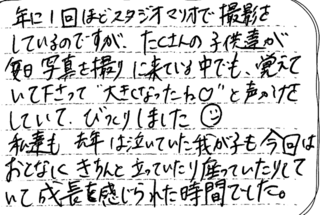 年に1回ほどスタジオマリオで撮影を
しているのですが、たくさんの子供達が
毎日写真を撮りに来ている中でも、覚えて
いて下さって"大きくなったわ♡"と声かけを
していて、びっくりしました☺
私達も去年は泣いていた我が子も今回は
おとなしくきちんと立っていたり座っていたりして
いて成長を感じられた時間でした。